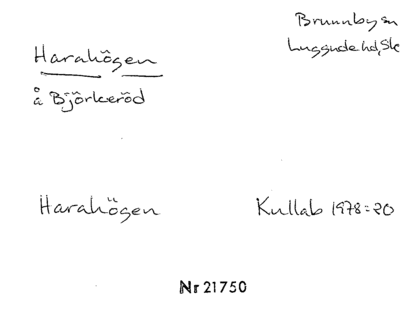 Harahögen
å Björkeröd
Brunnby sn
Luggude hd, Sk
Harahögen
Kullab 1978:20
Nr 21750